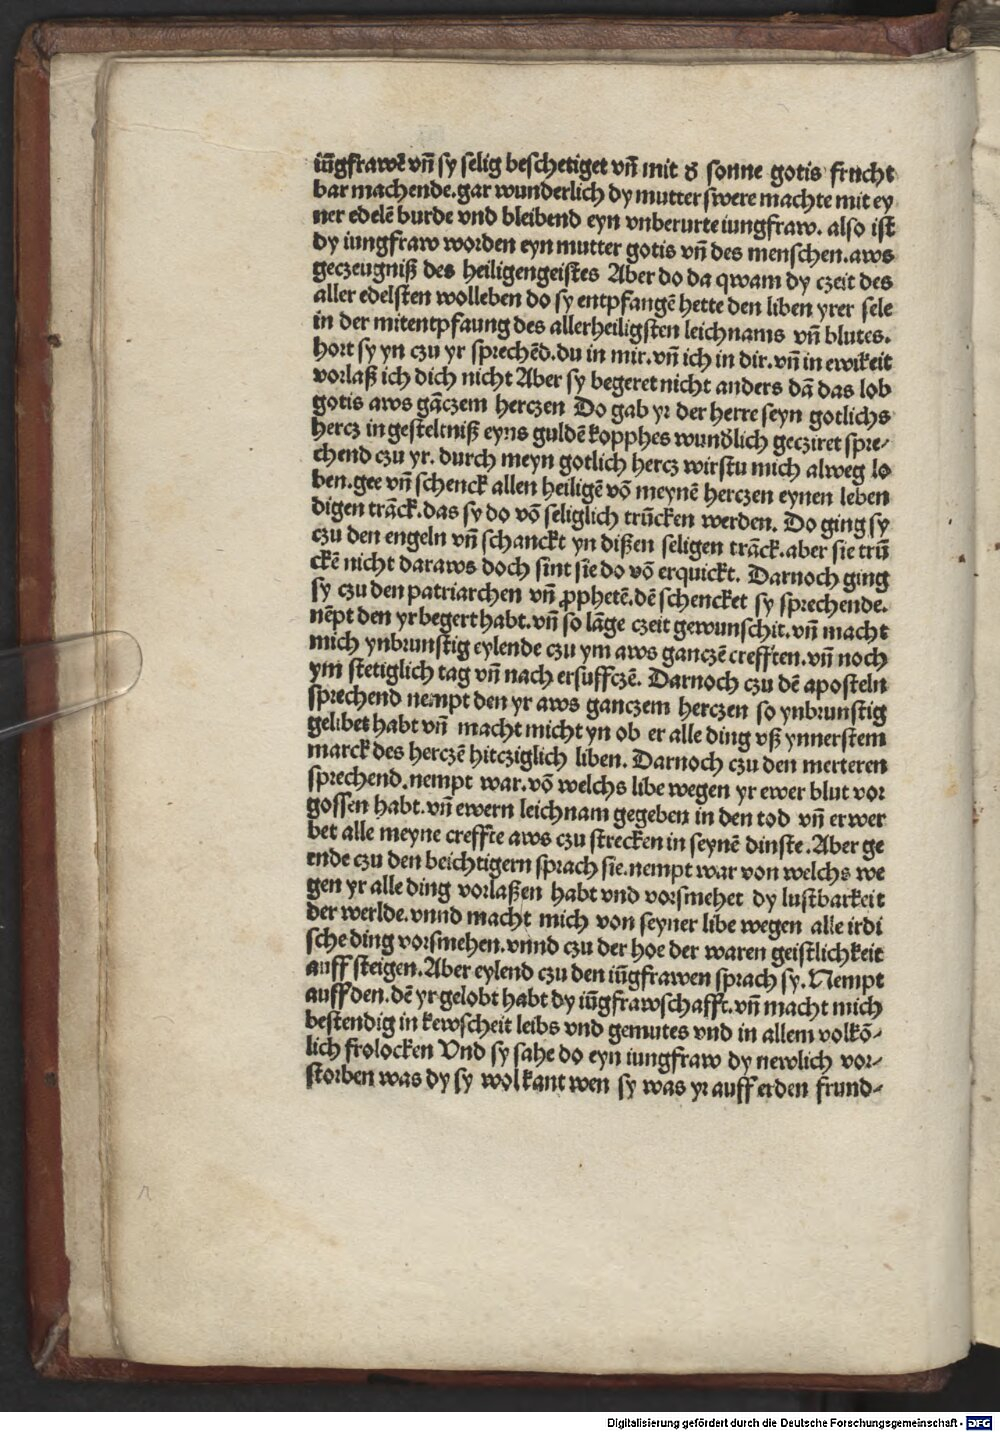 iūgfrawē vn̄ sy selig beschetiget vn̄ mit d᷑ sonne gotis frucht
bar machende.gar wunderlich dy mutter swere machte mit ey
ner edelē burde vnd bleibend eyn vnberurte iungfraw. also ist
dy iungfraw worden eyn mutter gotis vn̄ des menschen.aws
geczeugniß des heiligengeistes Aber do da qwam dy czeit des
aller edelsten wolleben do sy entpfangē hette den liben yrer sele
in der mitentpfaung des allerheiligsten leichnams vn̄ blutes.
hort sy yn czu yr sprechēd.du in mir.vn̄ ich in dir.vn̄ in ewikeit
vorlaß ich dich nicht Aber sy begeret nicht anders dā das lob
gotis aws gāczem herczen Do gab yr der herre seyn gotlichs
hercz in gesteltniß eyns guldē kopphes wund᷑lich gecziret spre-
chend czu yr. durch meyn gotlich hercz wirstu mich alweg lo
ben.gee vn̄ schenck allen heiligē vō meynē herczen eynen leben
digen trāck.das sy do vō seliglich trūcken werden. Do ging sy
czu den engeln vn̄ schanckt yn dißen seligen trāck.aber sie trū
ckē nicht daraws doch sint sie do vō erquickt. Darnoch ging
sy czu den patriarchen vn̄ ꝓphetē.dē schencket sy sprechende.
nēpt den yr begert habt.vn̄ so lāge czeit gewunschit.vn̄ macht
mich ynbrunstig eylende czu ym aws ganczē crefften.vn̄ noch
ym stetiglich tag vn̄ nach ersuffczē. Darnoch czu dē aposteln
sprechend nempt den yr aws ganczem herczen so ynbrunstig
gelibet habt vn̄ macht micht yn ob er alle ding vß ynnerstem
marck des herczē hitcziglich liben. Darnoch czu den merteren
sprechend.nempt war.vō welchs libe wegen yr ewer blut vor
gossen habt.vn̄ ewern leichnam gegeben in den tod vn̄ erwer
bet alle meyne creffte aws czu strecken in seynē dinste.Aber ge
ende czu den beichtigern sprach sie.nempt war von welchs we
gen yr alle ding vorlaßen habt vnd vorsmehet dy lustbarkeit
der werlde.vnnd macht mich von seyner libe wegen alle irdi
sche ding vorsmehen.vnnd czu der hoe der waren geistlichkeit
auff steigen.Aber eylend czu den iūgfrawen sprach sy.Nempt
auff den.dē yr gelobt habt dy iūgfrawschafft.vn̄ macht mich
bestendig in kewscheit leibs vnd gemutes vnd in allem volkō-
lich frolocken Vnd sy sahe do eyn iungfraw dy newlich vor-
storben was dy sy wol kant wen sy was yr auff erden frund-
Digitalisierung gefördert durch die Deutsche Forschungsgemeinschaft - DFG